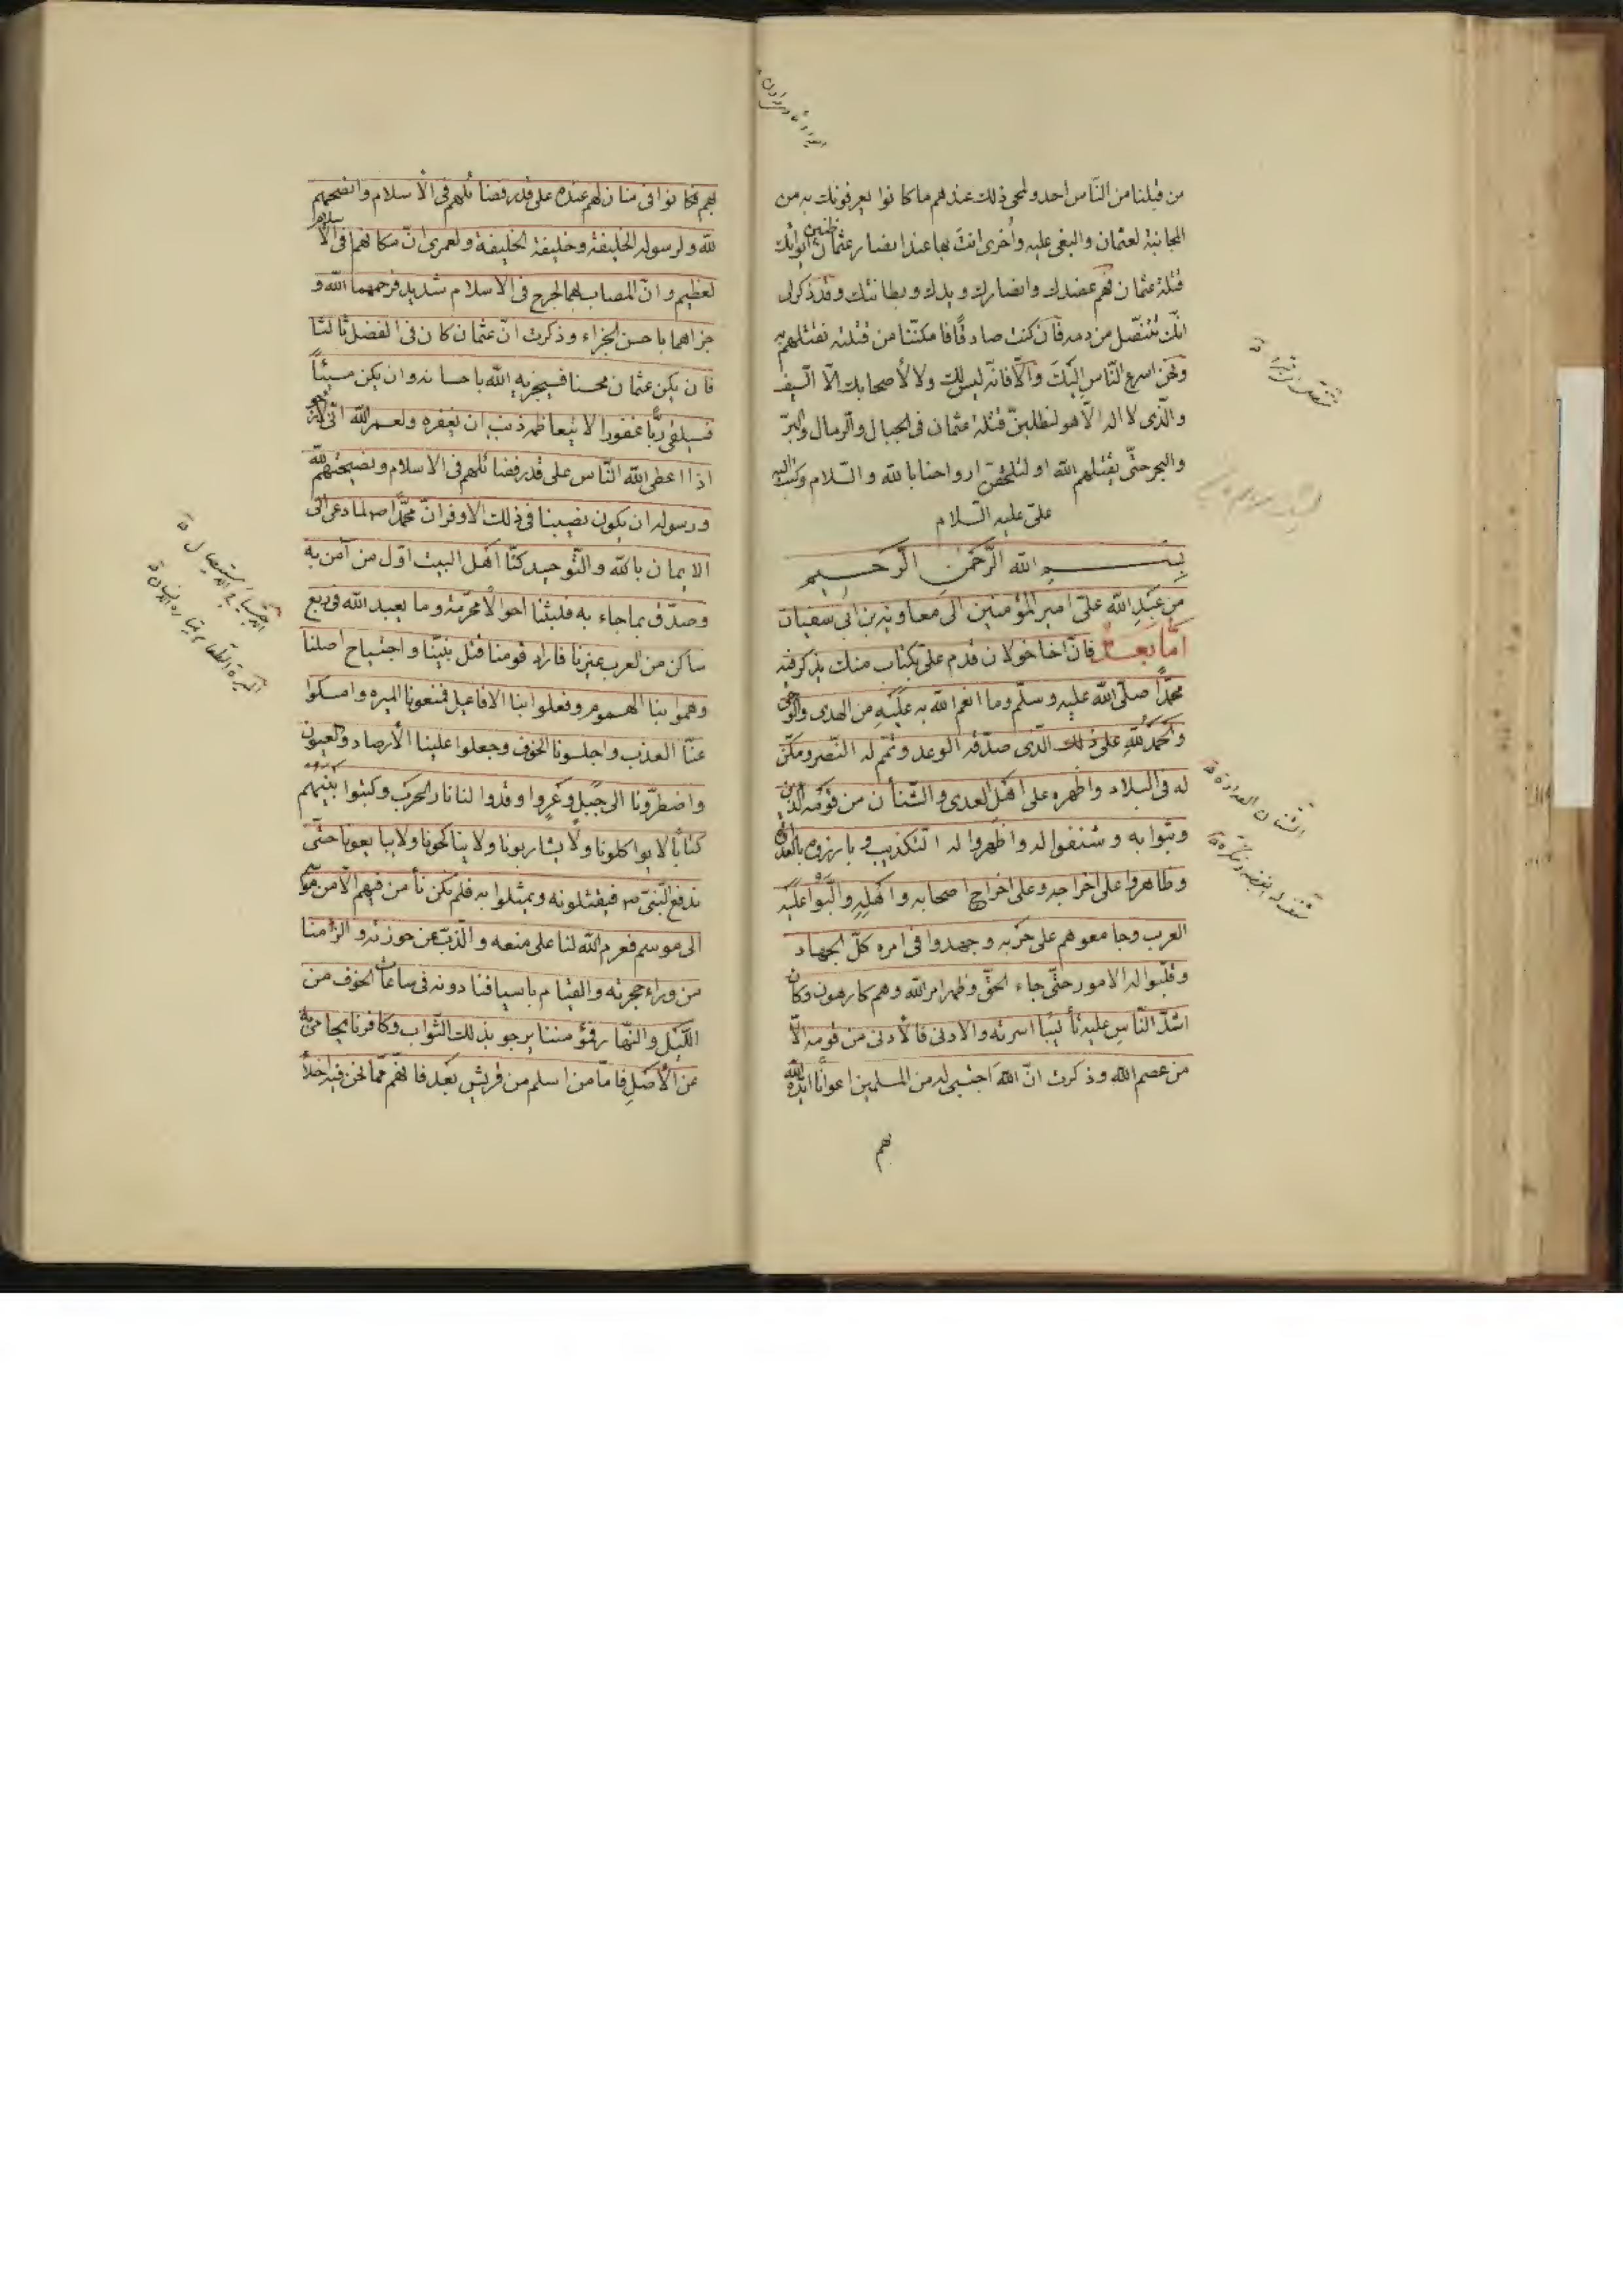 من قبلنا من النّاس احد ولمحى ذلك عندهم ما كانوا يعرفونك به من
المجانبة لعثمان والبغى عليه واُخرى انتَ بها عند انصار عثمان ظنين ايوائك
قتلة عثمان فهم عضدك وانصارك ويدك وبطانتك وقد ذكر لى
انّك تتنصّل من دمه فان كنت صادقًا فامكنّا من قتلته نقتلهم به
ونحن اسرع النّاس اليك والّا فانّه ليس لك ولا لأصحابك الّا السّيف
والّذى لا اله الّا هو لنطلبنّ قتلة عثمان فى الجبال والرّمال والبرّ
والبحر حتّى يقتلهم الله او لتلحقنّ ارواحنا بالله والسّلام وكتب اليه
علىّ عليه السّلام
بسم الله الرّحمن الرّحيم
من عبد الله علىّ امير المؤمنين الى معاوية بن ابى سفيان
امّا بعد فانّ اخا خولان قدم علىّ بكتاب منك يذكر فيه
محمّدًا صلّى الله عليه وسلّم وما انعم الله به عليه من الهدى والوحى
والحمد لله على ذلك الّذى صدّقه الوعد وتمّم له النّصر ومكّن
له فى البلاد واظهره على اهل العدى والشّنأن من قومه الّذين
وثبوا به وشنفوا له واظهروا له التّكذيب وبارزوه بالعداوة
وظاهروا على اخراجه وعلى اخراج اصحابه واهله والّبوا عليه
العرب وجامعوهم على حربه وجهدوا فى امره كلّ الجهاد
وقلّبوا له الامور حتّى جاء الحقّ وظهر امر الله وهم كارهون وكان
اشدّ النّاس عليه تأليبًا اسرته والادنى فالأدنى من قومه الّا
من عصم الله وذكرت انّ الله اجتبى له من المسلمين اعوانًا ايّده الله
بهم
الشنان العداوة
شنف له ابغضه وتنكره
بهم فكانوا فى منازلهم عنده على قدر فضائلهم فى الأسلام وانصحهم
لله ولرسوله الخليفة وخليفة الخليفة ولعمرى انّ مكانهما فى الأسلام
لعظيم وانّ المصاب بهما لجرح فى الاسلام شديد فرحمهما الله و
جزاهما باحسن الجزاء وذكرت انّ عثمان كان فى الفضل ثالثًا
فان يكن عثمان محسنا فسيجزيه الله باحسانه وان يكن مسيئًا
فسيلقى ربًّا غفورا لا يتعاظمه ذنب ان يغفره ولعمر الله انّى لارجو
اذا اعطى الله النّاس على قدر فضائلهم فى الاسلام ونصيحتهم لله
ورسوله ان يكون نصيبنا فى ذلك الاوفر انّ محمّدًا ص لما دعى الى
الايمان بالله والتّوحيد كنّا اهل البيت اوّل من آمن به
وصدّق بما جاء به فلبثنا احوالًا محرّمة وما يعبد الله فى ربع
ساكن من العرب غيرنا فاراد قومنا قتل نبيّنا واجتياح اصلنا
وهمّوا بنا الهموم وفعلوا بنا الافاعيل فمنعونا الميره وامسكوا
عنّا العذب واحلسونا الخوف وجعلوا علينا الأرصاد والعيون
واضطرّونا الى جبل وعر واوقدوا لنا نار الحرب وكتبوا بينهم
كتابًا لا يواكلونا ولا يشاربونا ولا يناكحونا ولا يبايعونا حتّى
ندفع النّبىّ ص فيقتلونه ويمثلوا به فلم نكن نأمن فيهم الّا من موسم
الى موسم فعزم الله لنا على منعه والذّبّ عن حوزته والزامنا
من وراء حجرته والقيام باسيافنا دونه فى ساعات الخوف من
اللّيل والنّهار فمؤمننا يرجو بذلك الثّواب وكافرنا يحامى به
عن الأصل فامّا من اسلم من قريش بعد فانّهم ممّا نحن فيه اخلاء
الاجتياح الاستيصال
الميرة الطعام يمتاره الانسان